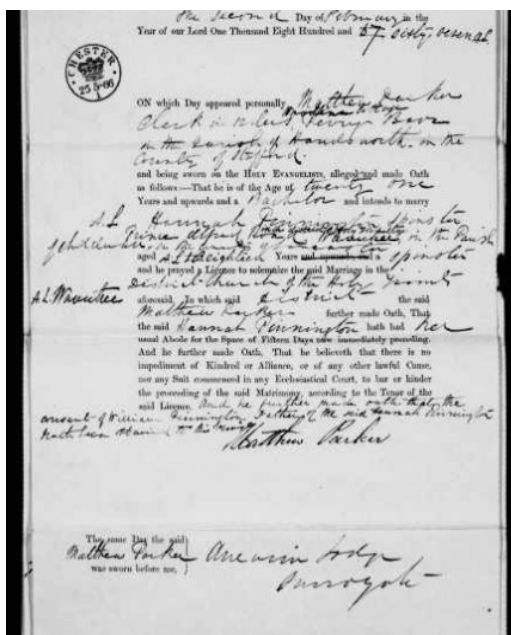 The Second Day of February in the
Year of our Lord One Thousand Eight Hundred and 67 sixty seven A.L.
CHESTER
25·5·66
ON which Day appeared personally Matthew Parker
Clerk in
in the Parish of Handsworth in the
County of Stafford.
and being sworn on the HOLY EVANGELISTS, alleged and made Oath
as follows:—That he is of the Age of twenty one
Years and upwards and a Bachelor and intends to marry
A.L. Hannah Pinnington Spinster
Prince Alfred Road in the Parish
aged Eighteen Years and upwards and a Spinster
and he prayed a Licence to solemnize the said Marriage in the
A.L. Wavertree District Church of the Holy Trinity
aforesaid, In which said District the said
Matthew Parker further made Oath, That
the said Hannah Pinnington hath had her
usual Abode for the Space of Fifteen Days now immediately preceding.
And he further made Oath, That he believeth that there is no
impediment of Kindred or Alliance, or of any other lawful Cause,
nor any Suit commenced in any Ecclesiastical Court, to bar or hinder
the proceeding of the said Matrimony, according to the Tenor of the
said Licence. And he further made oath that the
consent of William Pinnington Father of the said Hannah Pinnington
hath been obtained to this
Matthew Parker
The same Day the said
Matthew Parker
was sworn before me,
Surrogate